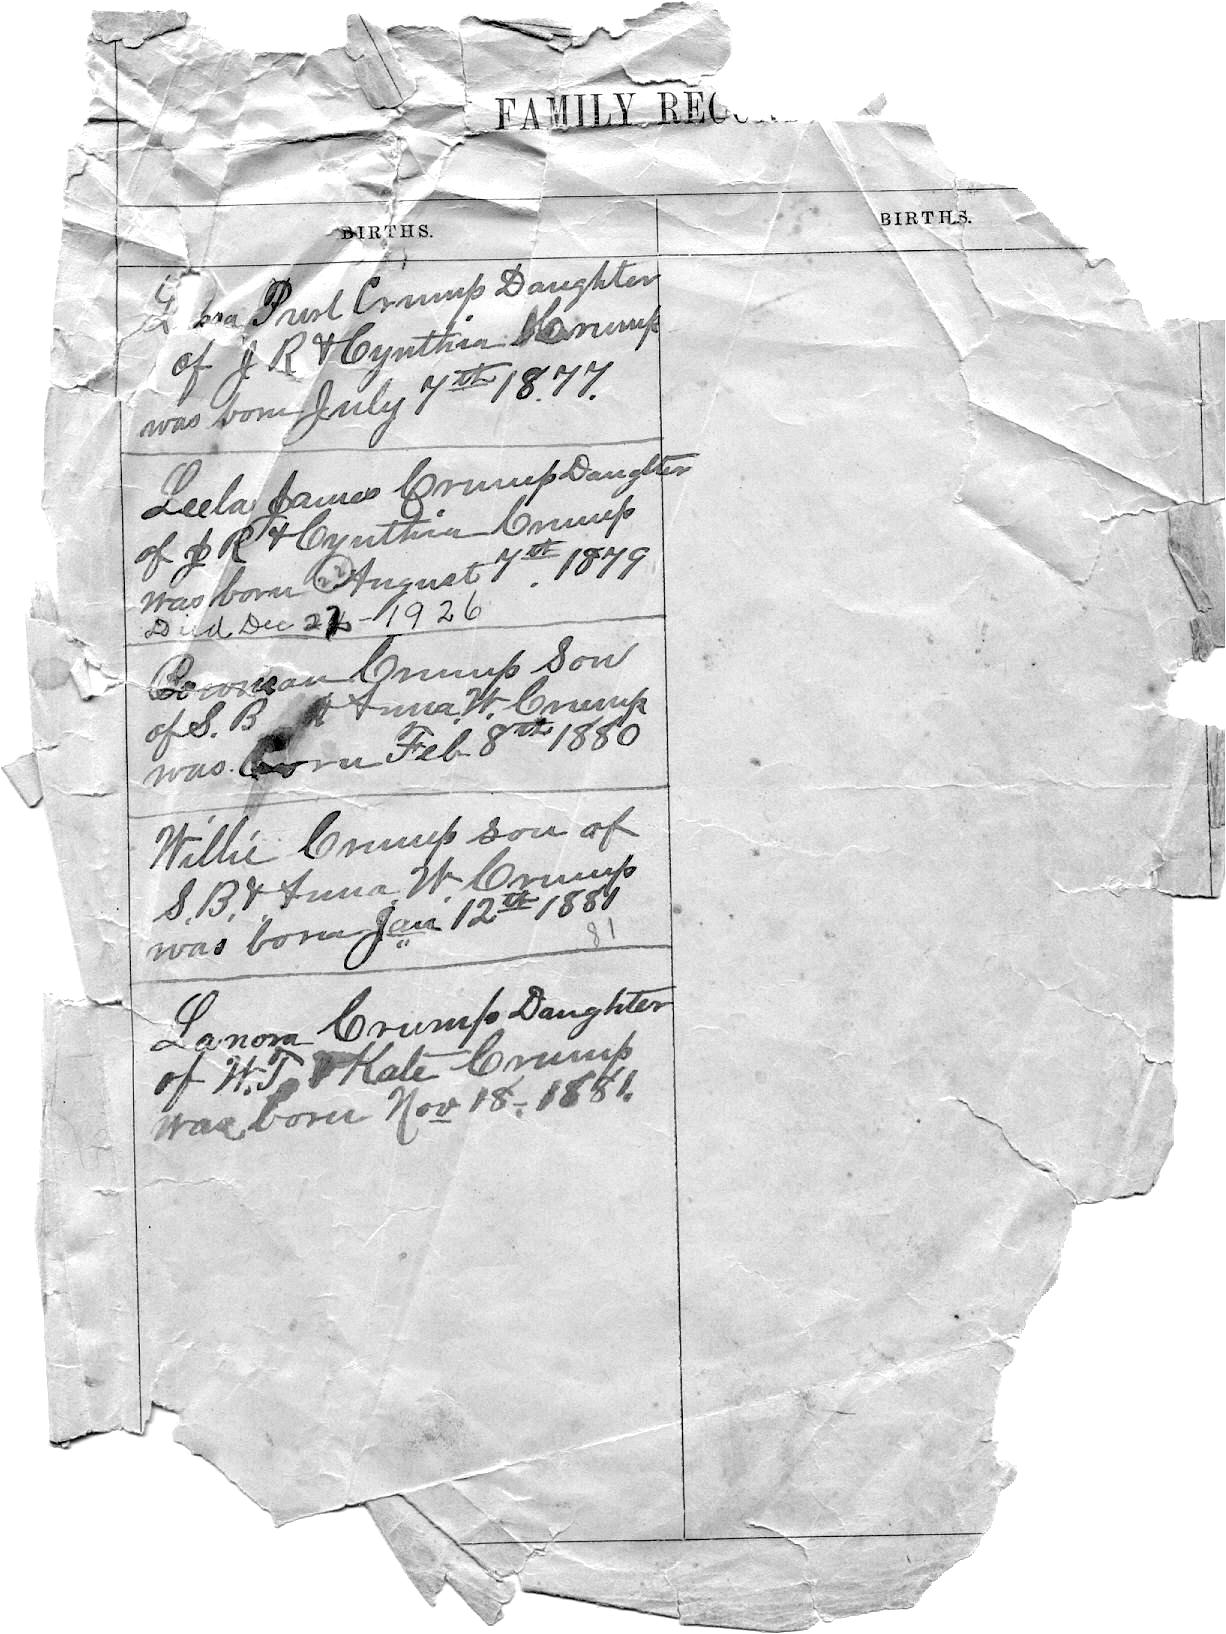 FAMILY RECORD
BIRTHS.
BIRTHS.
Purl Crump Daughter
of J R & Cynthia Crump
was born July 7th 1877.
Leela James Crump Daughter
of J R & Cynthia Crump
was born August 7th. 1879
Died Dec - 1926
Bowman Crump Son
of S. B & Anna. W. Crump
was born Feb 8th 1880
Willie Crump son of
S. B. & Anna. W. Crump
was born Jan 12th 1881
81
Lanora Crump Daughter
of W. T & Kate Crump
was born Nov 18. 1881.